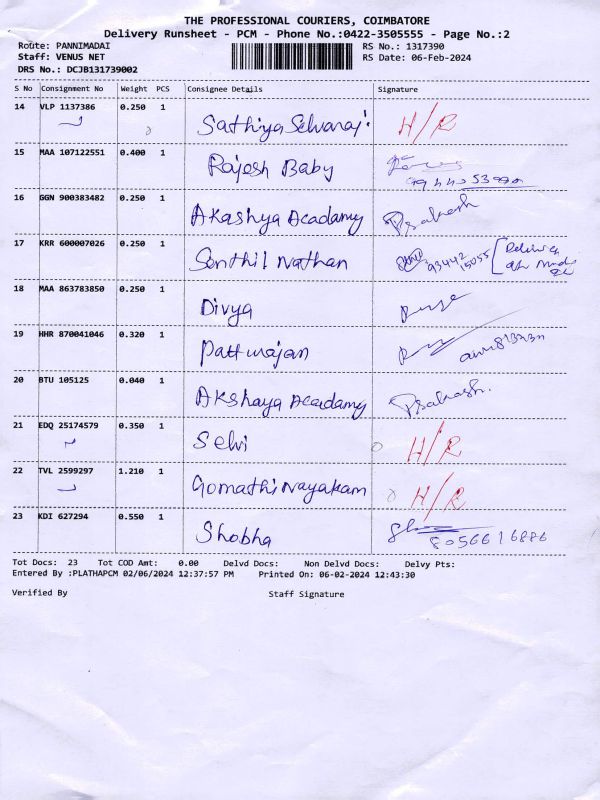 THE PROFESSIONAL COURIERS, COIMBATORE
Delivery Runsheet - PCM - Phone No.:0422-3505555 - Page No.:2
Route: PANNIMADAI RS No.: 1317390
Staff: VENUS NET RS Date: 06-Feb-2024
DRS No.: DCJB131739002
S No Consignment No Weight PCS Consignee Details Signature
14 VLP 1137386 0.250 1 Sathiya Selvaraj. H/R
15 MAA 107122551 0.400 1 Rajesh Baby
16 GGN 900383482 0.250 1 Akashya Acadamy Prakash
17 KRR 600007026 0.250 1 Senthil Nathan 93442 15055
18 MAA 863783850 0.250 1 Divya
19 HHR 870041046 0.320 1 Patturajan
20 BTU 105125 0.040 1 Akshaya Acadamy Prakash.
21 EDQ 25174579 0.350 1 Selvi H/R
22 TVL 2599297 1.210 1 Gomathi Nayakam H/R
23 KDI 627294 0.550 1 Shobha 8056616886
Tot Docs: 23 Tot COD Amt: 0.00 Delvd Docs: Non Delvd Docs: Delvy Pts:
Entered By :PLATHAPCM 02/06/2024 12:37:57 PM Printed On: 06-02-2024 12:43:30
Verified By Staff Signature